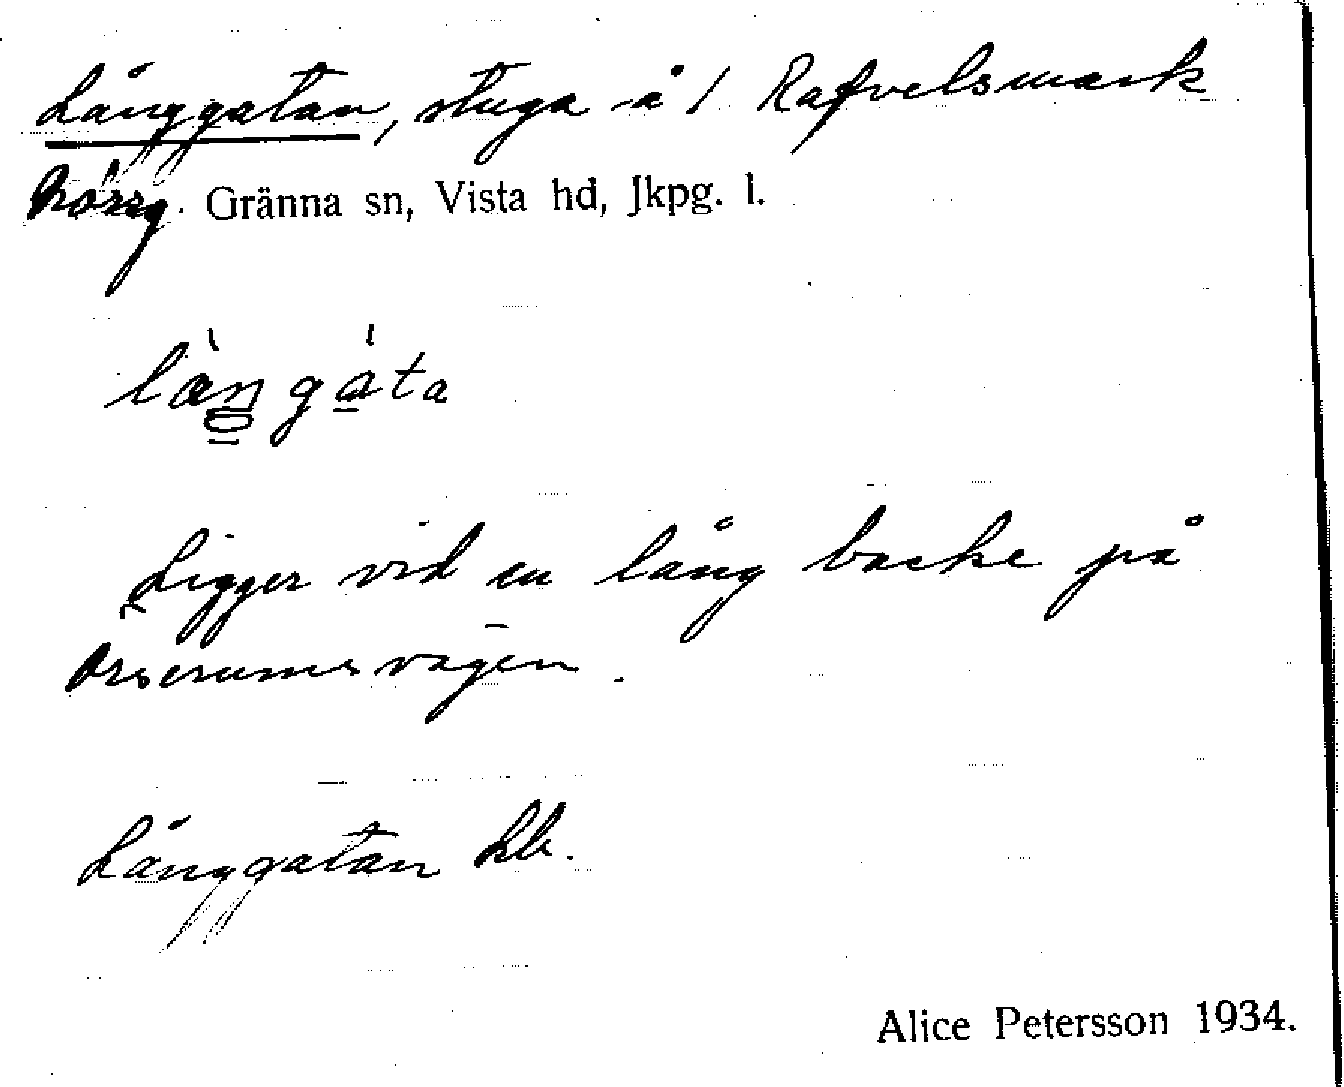 Långgatan, stuga å 1 Rafvelsmark
Norrg. Gränna sn, Vista hd, Jkpg. l.
lån̲gáta
Ligger vid en lång backe på
Örserumsvägen.
Långgatan hb.
Alice Petersson 1934.